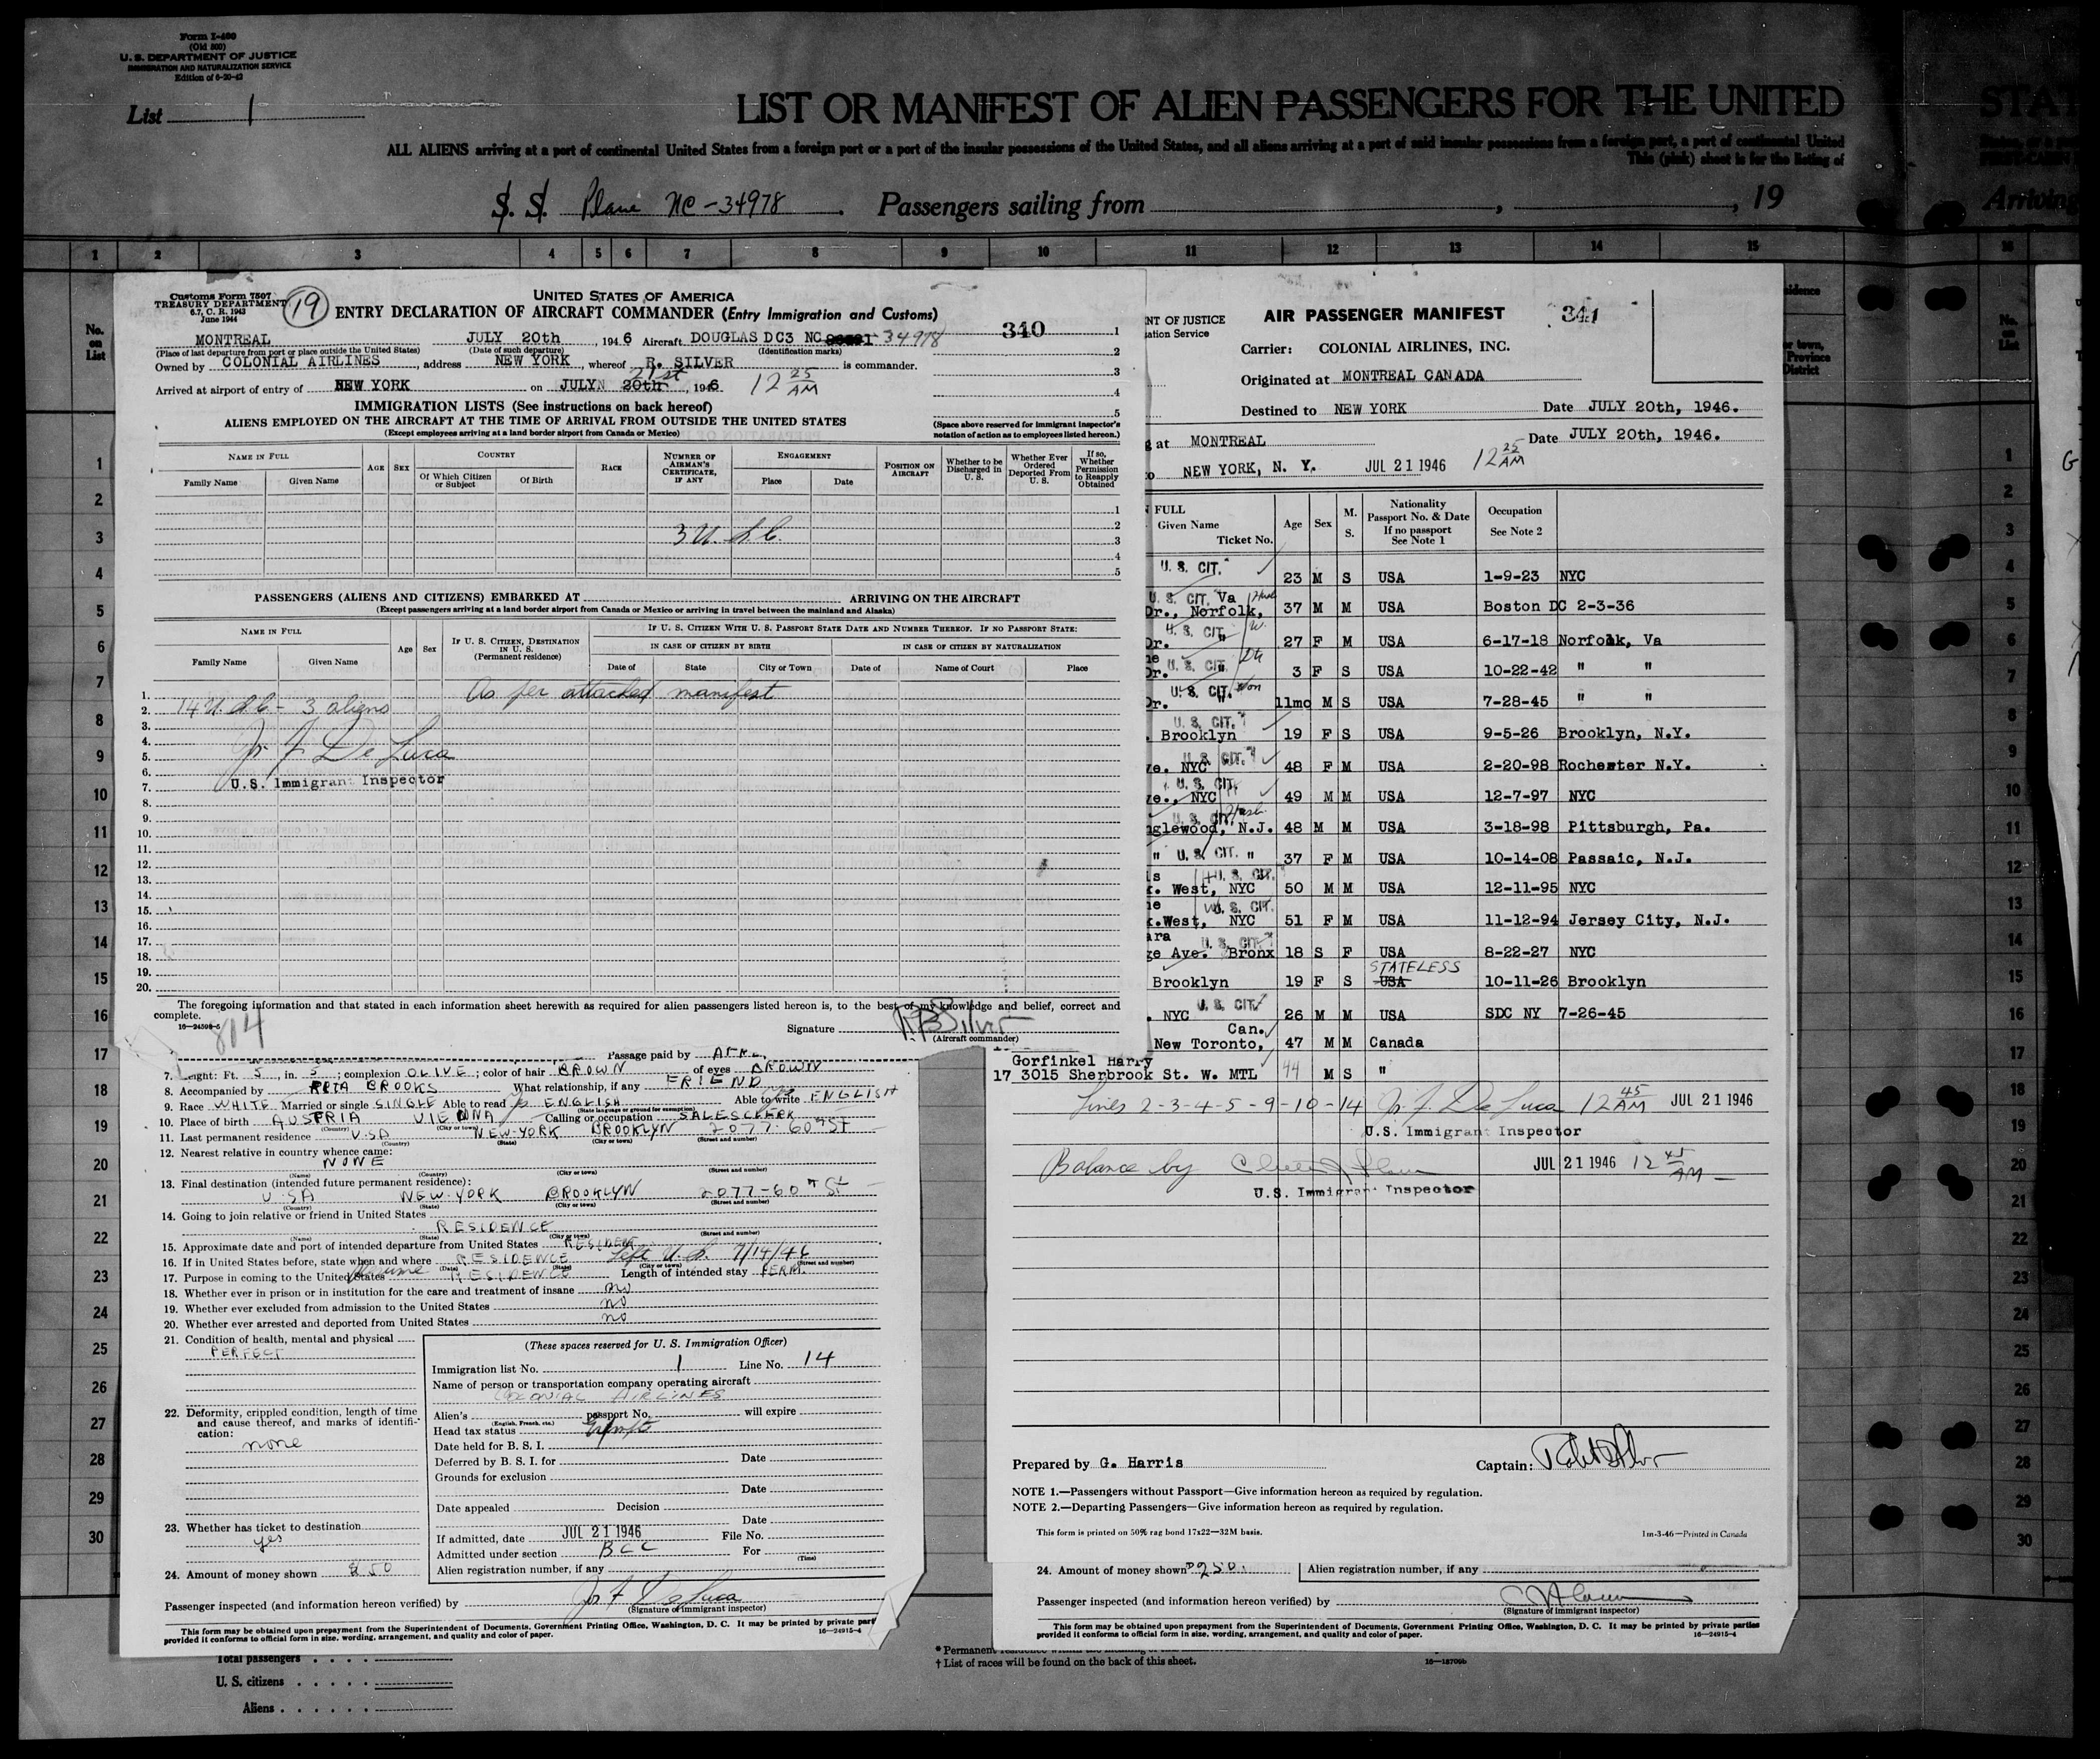 Form I-400
(Old 500)
U. S. DEPARTMENT OF JUSTICE
IMMIGRATION AND NATURALIZATION SERVICE
List 1
LIST OR MANIFEST OF ALIEN PASSENGERS FOR THE UNITED
STAT
ALL ALIENS arriving at a port of continental United States from a foreign port or a port of the insular possessions of the United States, and all aliens arriving at a port of said insular possessions from a foreign port, a port of continental United
This (pink) sheet is for the listing of
S. S. Plane NC-34978. Passengers sailing from , , 19
Arriving
1 2 3 4 5 6 7 8 9 10 11 12 13 14 15 16
No. on List
1
2
3
4
5
6
7
8
9
10
11
12
13
14
15
16
17
18
19
20
21
22
23
24
25
26
27
28
29
30
Customs Form 7507
TREASURY DEPARTMENT
6.7, C. R. 1943
June 1944
19
UNITED STATES OF AMERICA
ENTRY DECLARATION OF AIRCRAFT COMMANDER (Entry Immigration and Customs)
340
MONTREAL JULY 20th, 1946 Aircraft DOUGLAS DC3 NC 34978
(Place of last departure from port or place outside the United States) (Date of such departure) (Identification marks)
Owned by COLONIAL AIRLINES, address NEW YORK, whereof R. SILVER is commander.
Arrived at airport of entry of NEW YORK on JULY 20th 21st, 1946 12 25 AM
IMMIGRATION LISTS (See instructions on back hereof)
ALIENS EMPLOYED ON THE AIRCRAFT AT THE TIME OF ARRIVAL FROM OUTSIDE THE UNITED STATES
(Except employees arriving at a land border airport from Canada or Mexico)
(Space above reserved for immigrant inspector's notation of action as to employees listed hereon.)
NAME IN FULL
Family Name Given Name
AGE SEX
COUNTRY
Of Which Citizen or Subject Of Birth
RACE
NUMBER OF AIRMAN'S CERTIFICATE, IF ANY
ENGAGEMENT
Place Date
POSITION ON AIRCRAFT
Whether to be Discharged in U. S.
Whether Ever Ordered Deported From U. S.
If so, Whether Permission to Reapply Obtained
3 U.S.C.
PASSENGERS (ALIENS AND CITIZENS) EMBARKED AT ARRIVING ON THE AIRCRAFT
(Except passengers arriving at a land border airport from Canada or Mexico or arriving in travel between the mainland and Alaska)
NAME IN FULL
Family Name Given Name
Age Sex
IF U. S. CITIZEN, DESTINATION IN U. S. (Permanent residence)
IF U. S. CITIZEN WITH U. S. PASSPORT STATE DATE AND NUMBER THEREOF. IF NO PASSPORT STATE:
IN CASE OF CITIZEN BY BIRTH IN CASE OF CITIZEN BY NATURALIZATION
Date of State City or Town Date of Name of Court Place
1. As per attached manifest
2. 14 U.S.C - 3 aliens
3.
4.
5. Jr. F. De Luca
6.
7. U.S. Immigrant Inspector
8.
9.
10.
11.
12.
13.
14.
15.
16.
17.
18.
19.
20.
The foregoing information and that stated in each information sheet herewith as required for alien passengers listed hereon is, to the best of my knowledge and belief, correct and complete.
16—24598-5
814
Signature R B Silver
(Aircraft commander)
Passage paid by
7. Height: Ft. 5, in. 5; complexion OLIVE; color of hair BROWN of eyes BROWN
8. Accompanied by RITA BROOKS What relationship, if any FRIEND
9. Race WHITE Married or single SINGLE Able to read ENGLISH Able to write ENGLISH
(State language or ground for exemption)
10. Place of birth AUSTRIA VIENNA Calling or occupation SALESCLERK
(Country) (City or town)
11. Last permanent residence USA NEW-YORK BROOKLYN 2077-60th ST
(Country) (State) (City or town) (Street and number)
12. Nearest relative in country whence came:
NONE
(Name) (Country) (City or town) (Street and number)
13. Final destination (intended future permanent residence):
U-SA NEW-YORK BROOKLYN 2077-60th St
(Country) (State) (City or town) (Street and number)
14. Going to join relative or friend in United States
RESIDENCE
(Name) (State) (City or town) (Street and number)
15. Approximate date and port of intended departure from United States
16. If in United States before, state when and where RESIDENCE Left U.S. 7/14/46
(Date) (State) (City or town) (Street and number)
17. Purpose in coming to the United States Resume RESIDENCE Length of intended stay PERM.
18. Whether ever in prison or in institution for the care and treatment of insane no
19. Whether ever excluded from admission to the United States no
20. Whether ever arrested and deported from United States no
21. Condition of health, mental and physical
PERFECT
22. Deformity, crippled condition, length of time and cause thereof, and marks of identification:
none
23. Whether has ticket to destination
yes
24. Amount of money shown $50
(These spaces reserved for U. S. Immigration Officer)
Immigration list No. 1 Line No. 14
Name of person or transportation company operating aircraft
COLONIAL AIRLINES
Alien's passport No. will expire
(English, French, etc.)
Head tax status Exempt
Date held for B. S. I.
Deferred by B. S. I. for Date
Grounds for exclusion
Date
Date appealed Decision
Date
If admitted, date JUL 21 1946 File No.
Admitted under section BCC For
(Time)
Alien registration number, if any
Passenger inspected (and information hereon verified) by Jr. F. De Luca
(Signature of immigrant inspector)
This form may be obtained upon prepayment from the Superintendent of Documents, Government Printing Office, Washington, D. C. It may be printed by private parties
provided it conforms to official form in size, wording, arrangement, and quality and color of paper.
16—24915-4
Total passengers
U. S. citizens
Aliens
NT OF JUSTICE
ation Service
AIR PASSENGER MANIFEST
341
Carrier: COLONIAL AIRLINES, INC.
Originated at MONTREAL CANADA
Destined to NEW YORK Date JULY 20th, 1946.
at MONTREAL Date JULY 20th, 1946.
NEW YORK, N. Y. JUL 21 1946 12 25 AM
FULL
Given Name
Ticket No.
Age Sex M. S.
Nationality
Passport No. & Date
If no passport
See Note 1
Occupation
See Note 2
U. S. CIT. 23 M S USA 1-9-23 NYC
U. S. CIT. Va
Dr., Norfolk, 37 M M USA Boston DC 2-3-36
Dr. U. S. CIT. 27 F M USA 6-17-18 Norfolk, Va
Dr. U. S. CIT. 3 F S USA 10-22-42 " "
Dr. U. S. CIT. 11mo M S USA 7-28-45 " "
U. S. CIT.
Brooklyn 19 F S USA 9-5-26 Brooklyn, N.Y.
ve. NYC U. S. CIT. 48 F M USA 2-20-98 Rochester N.Y.
U. S. CIT.
ve., NYC 49 M M USA 12-7-97 NYC
U. S. CIT.
nglewood, N.J. 48 M M USA 3-18-98 Pittsburgh, Pa.
" U. S. CIT. " 37 F M USA 10-14-08 Passaic, N.J.
U. S. CIT.
k. West, NYC 50 M M USA 12-11-95 NYC
U. S. CIT.
k.West, NYC 51 F M USA 11-12-94 Jersey City, N.J.
ara U. S. CIT.
ge Ave. Bronx 18 S F USA 8-22-27 NYC
STATELESS
Brooklyn 19 F S USA 10-11-26 Brooklyn
. NYC U. S. CIT. 26 M M USA SDC NY 7-26-45
Can.
New Toronto, 47 M M Canada
Gorfinkel Harry
17 3015 Sherbrook St. W. MTL 44 M S "
Lines 2-3-4-5-9-10-14 Jr. F. De Luca 12 45 AM JUL 21 1946
U.S. Immigrant Inspector
Balance by JUL 21 1946 12 45 AM
U.S. Immigrant Inspector
Prepared by G. Harris
Captain:
NOTE 1.—Passengers without Passport—Give information hereon as required by regulation.
NOTE 2.—Departing Passengers—Give information hereon as required by regulation.
This form is printed on 50% rag bond 17x22—32M basis.
1m-3-46—Printed in Canada
24. Amount of money shown $250.
Alien registration number, if any
Passenger inspected (and information hereon verified) by
(Signature of immigrant inspector)
This form may be obtained upon prepayment from the Superintendent of Documents, Government Printing Office, Washington, D. C. It may be printed by private parties
provided it conforms to official form in size, wording, arrangement, and quality and color of paper.
16—24915-4
* Permanent
† List of races will be found on the back of this sheet.